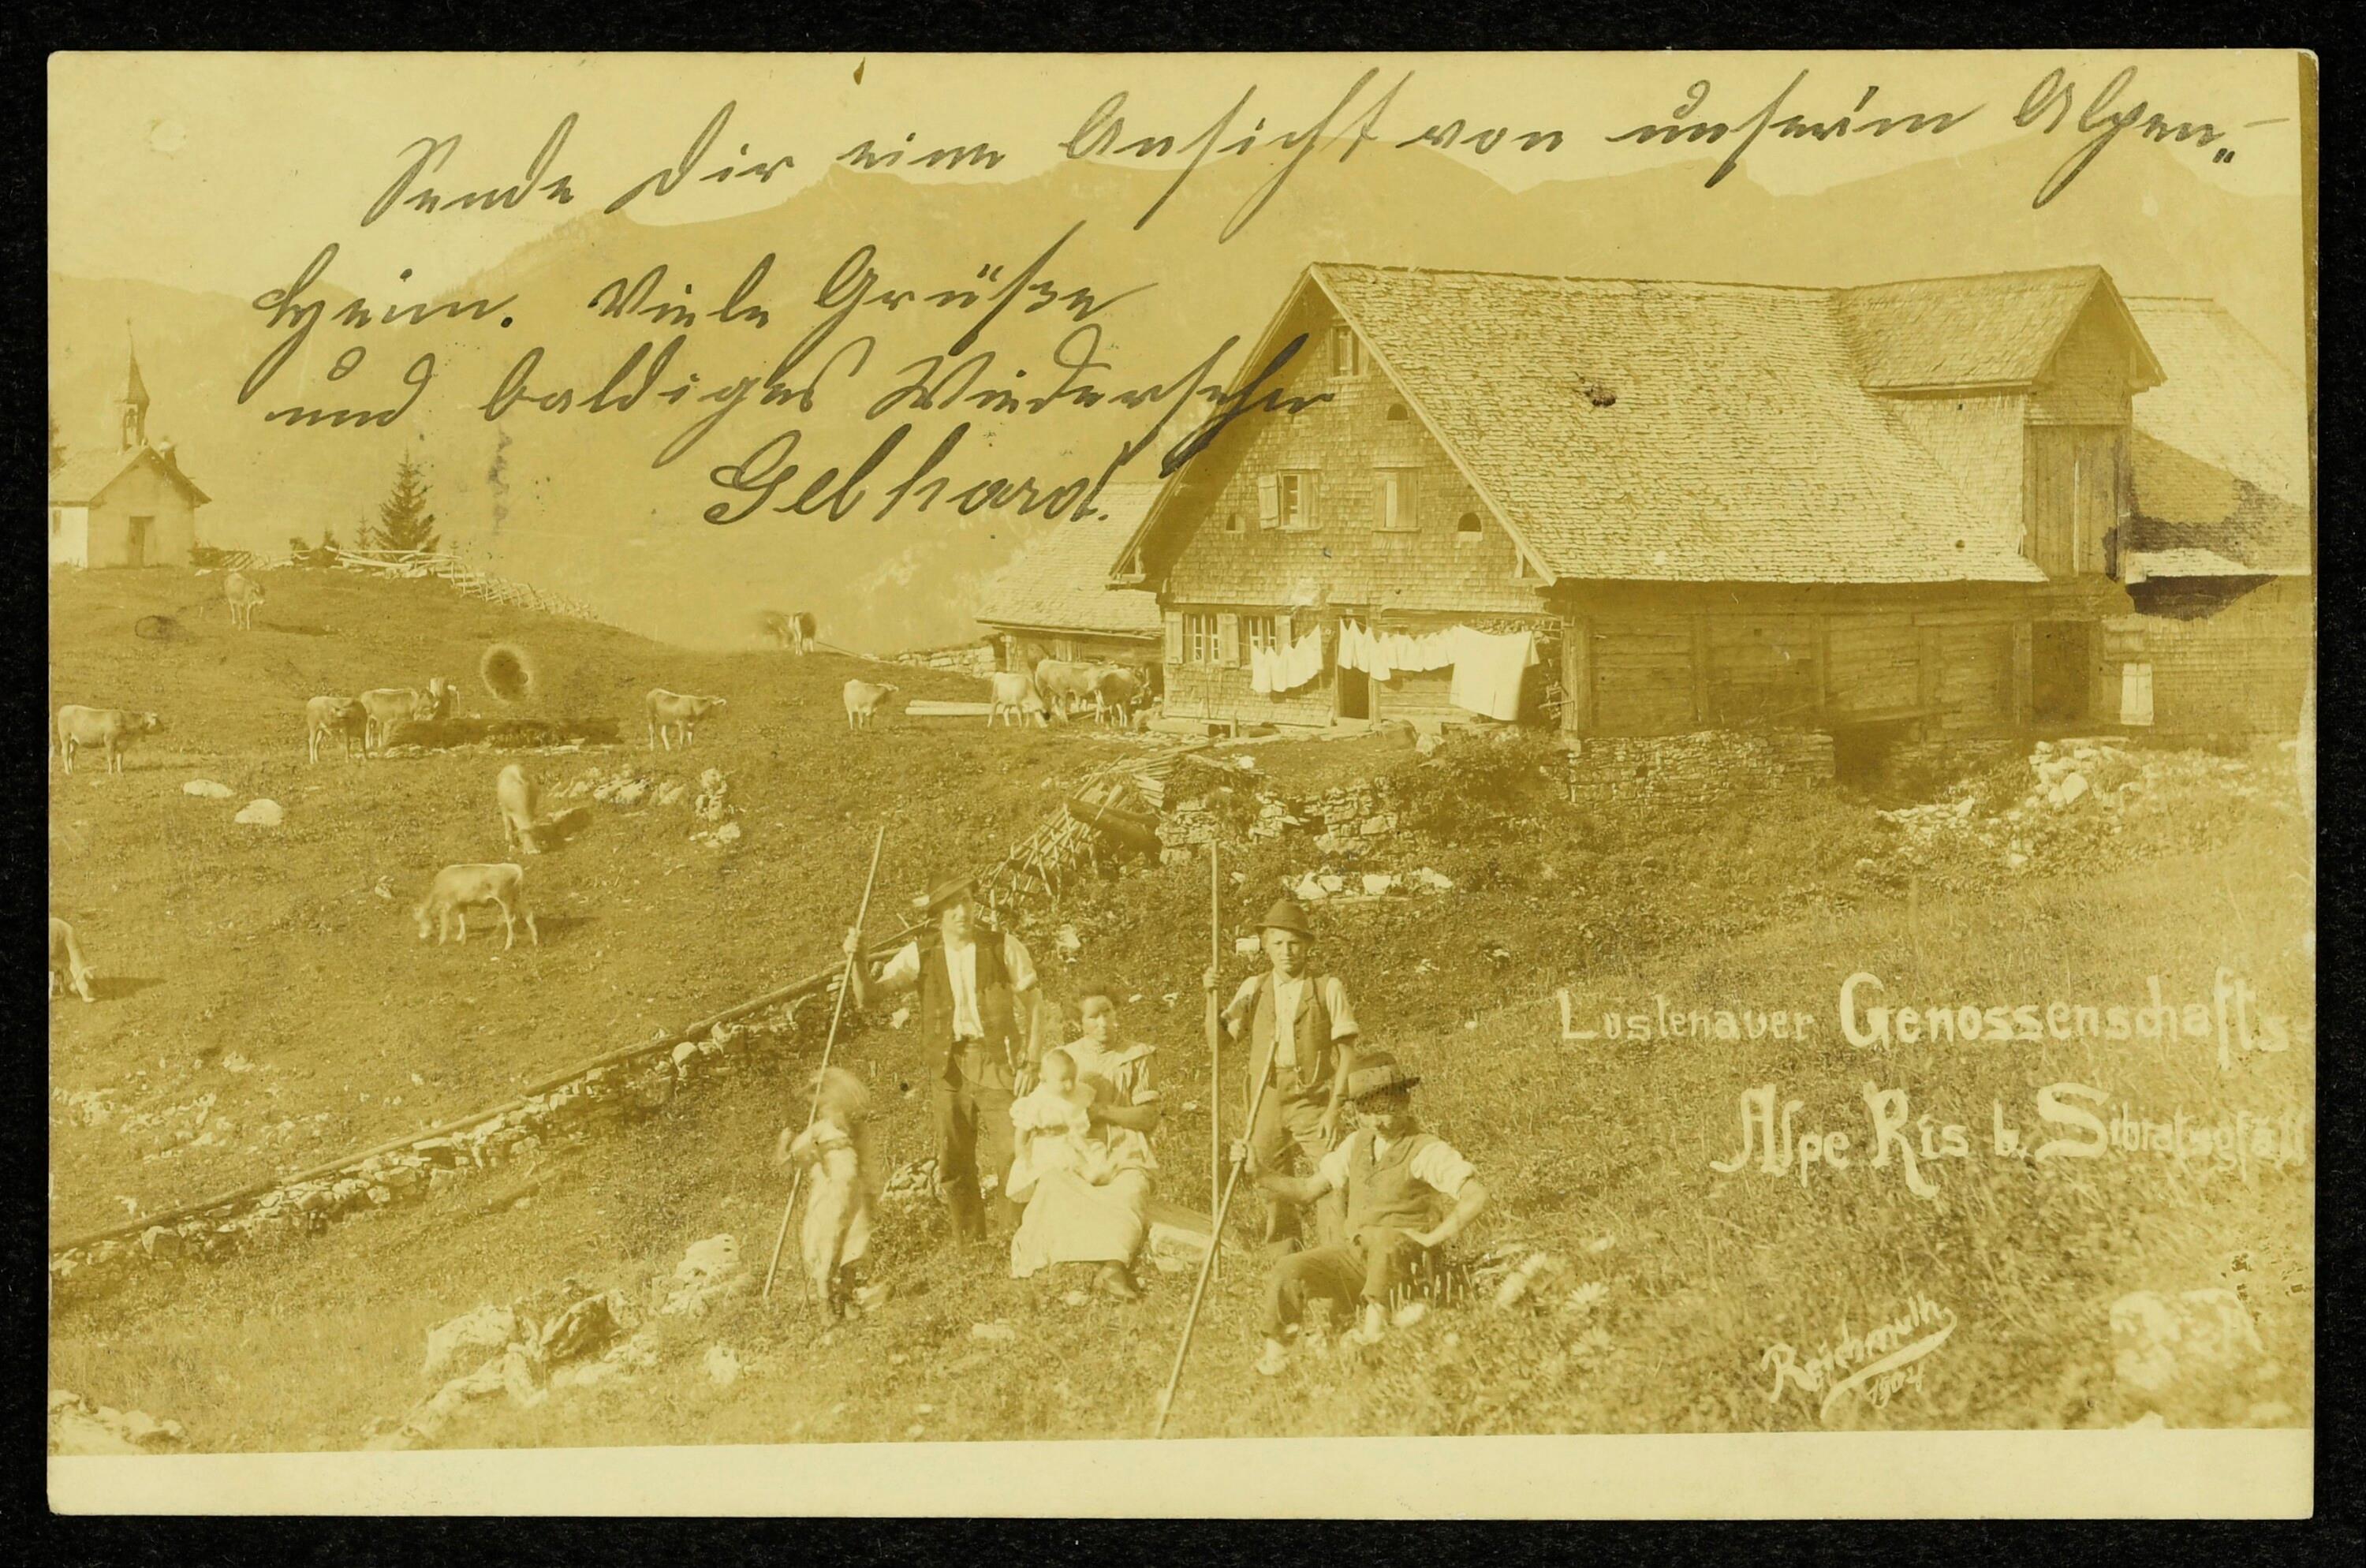 Sende Dir eine Ansicht von unser'm Alpen-
heim. Viele Grüße
und baldiges Wiedersehn
Gebhard.
Lustenauer Genossenschafts
Alpe Ris b. Sibratsgfäll
Reichmuth
1904